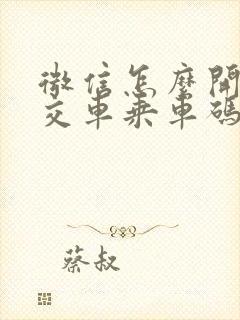 微信怎麼開
交車乘車碼
蔡叔